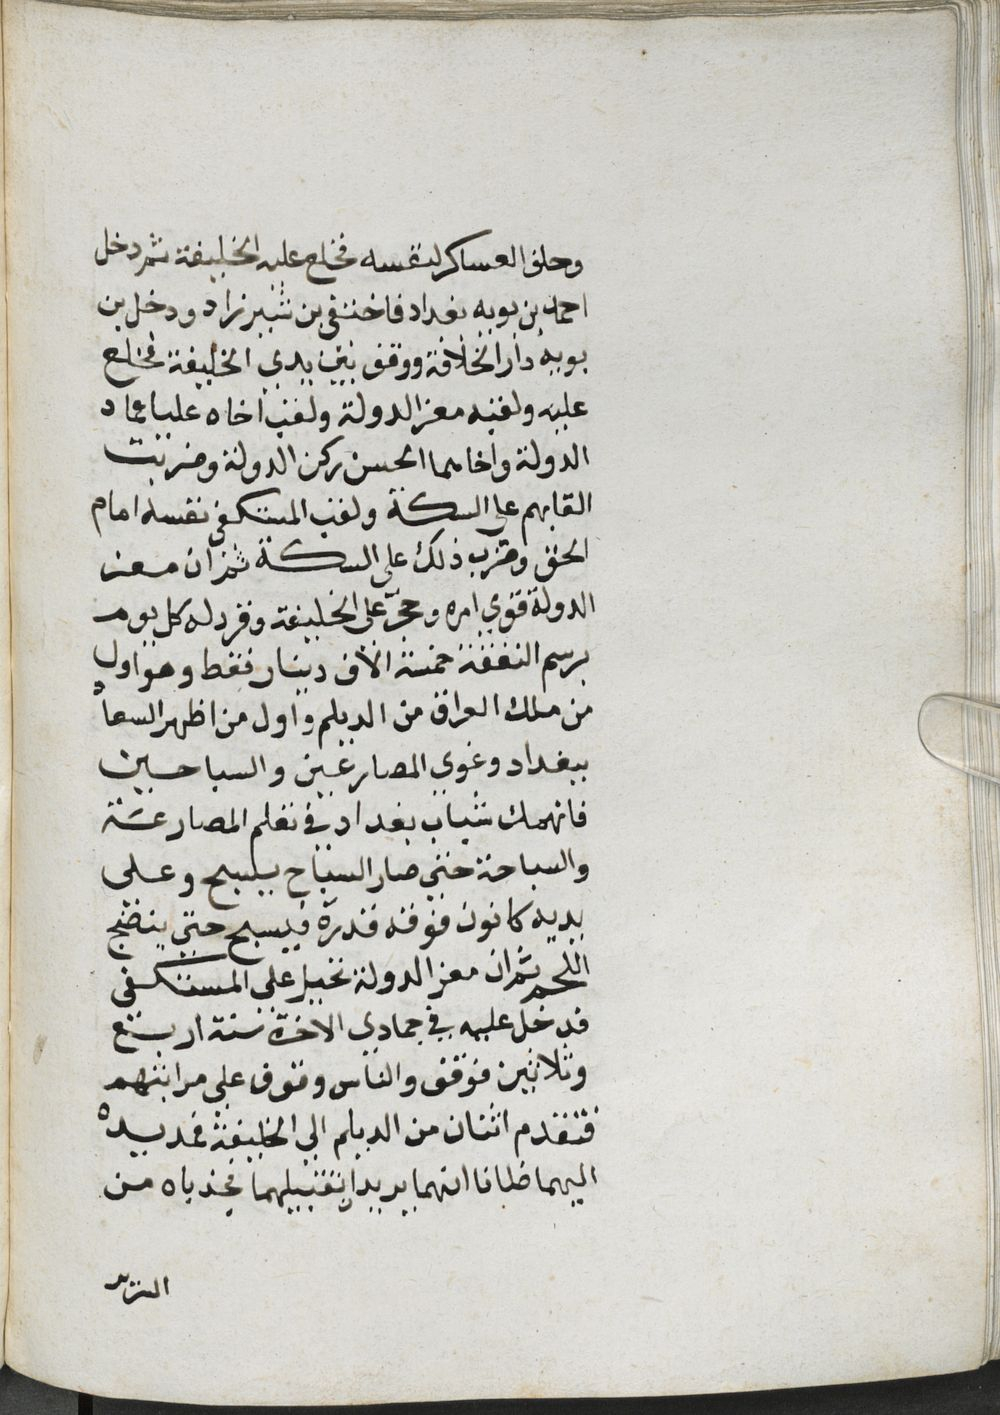 وحلف العساكر لنفسه فخلع عليه الخليفة ثم دخل
احمد بن بويه بغداد فاختفى بن شيرزاد ودخل بن
بويه دار الخلافة ووقف بين يدي الخليفة فخلع
عليه ولقبه معز الدولة ولقب اخاه عليا عماد
الدولة واخاهما الحسن ركن الدولة وضربت
القابهم على السكة ولقب المستكفي نفسه امام
الحق وضرب ذلك على السكة ثم ان معز
الدولة قوي امره وحجر على الخليفة وقرر له كل يوم
برسم النفقة خمسة الاف دينار فقط وهو اول
من ملك العراق من الديلم واول من اظهر السعاة
ببغداد وغوي المصارعين والسباحين
فانهمك شباب بغداد في تعلم المصارعة
والسباحة حتى صار السباح يسبح وعلى
يديه كانون فوقه قدرة فيسبح حتى ينضج
اللحم ثم ان معز الدولة تخيل على المستكفي
فدخل عليه في جمادي الاخرة سنة اربع
وثلاثين فوقف والناس وقوف على مراتبهم
فتقدم اثنان من الديلم الى الخليفة فمد يده
اليهما ظانا انهما يريدا تقبيلهما فجذباه من
السرير